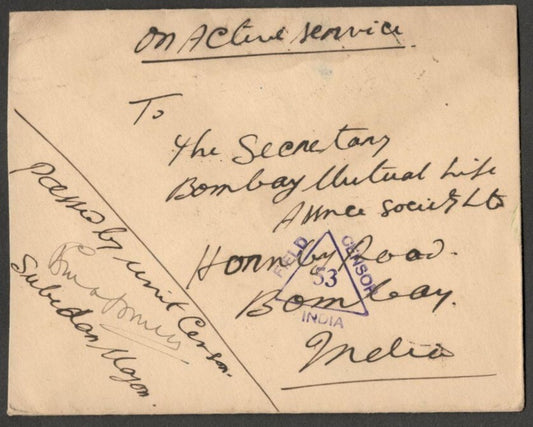 On Active Service
To
The Secretary
Bombay Mutual Life
Assnce Society Ltd
Hornby Road.
Bombay.
India
FIELD CENSOR
53
INDIA
passed by unit Censor
Subedar Major.